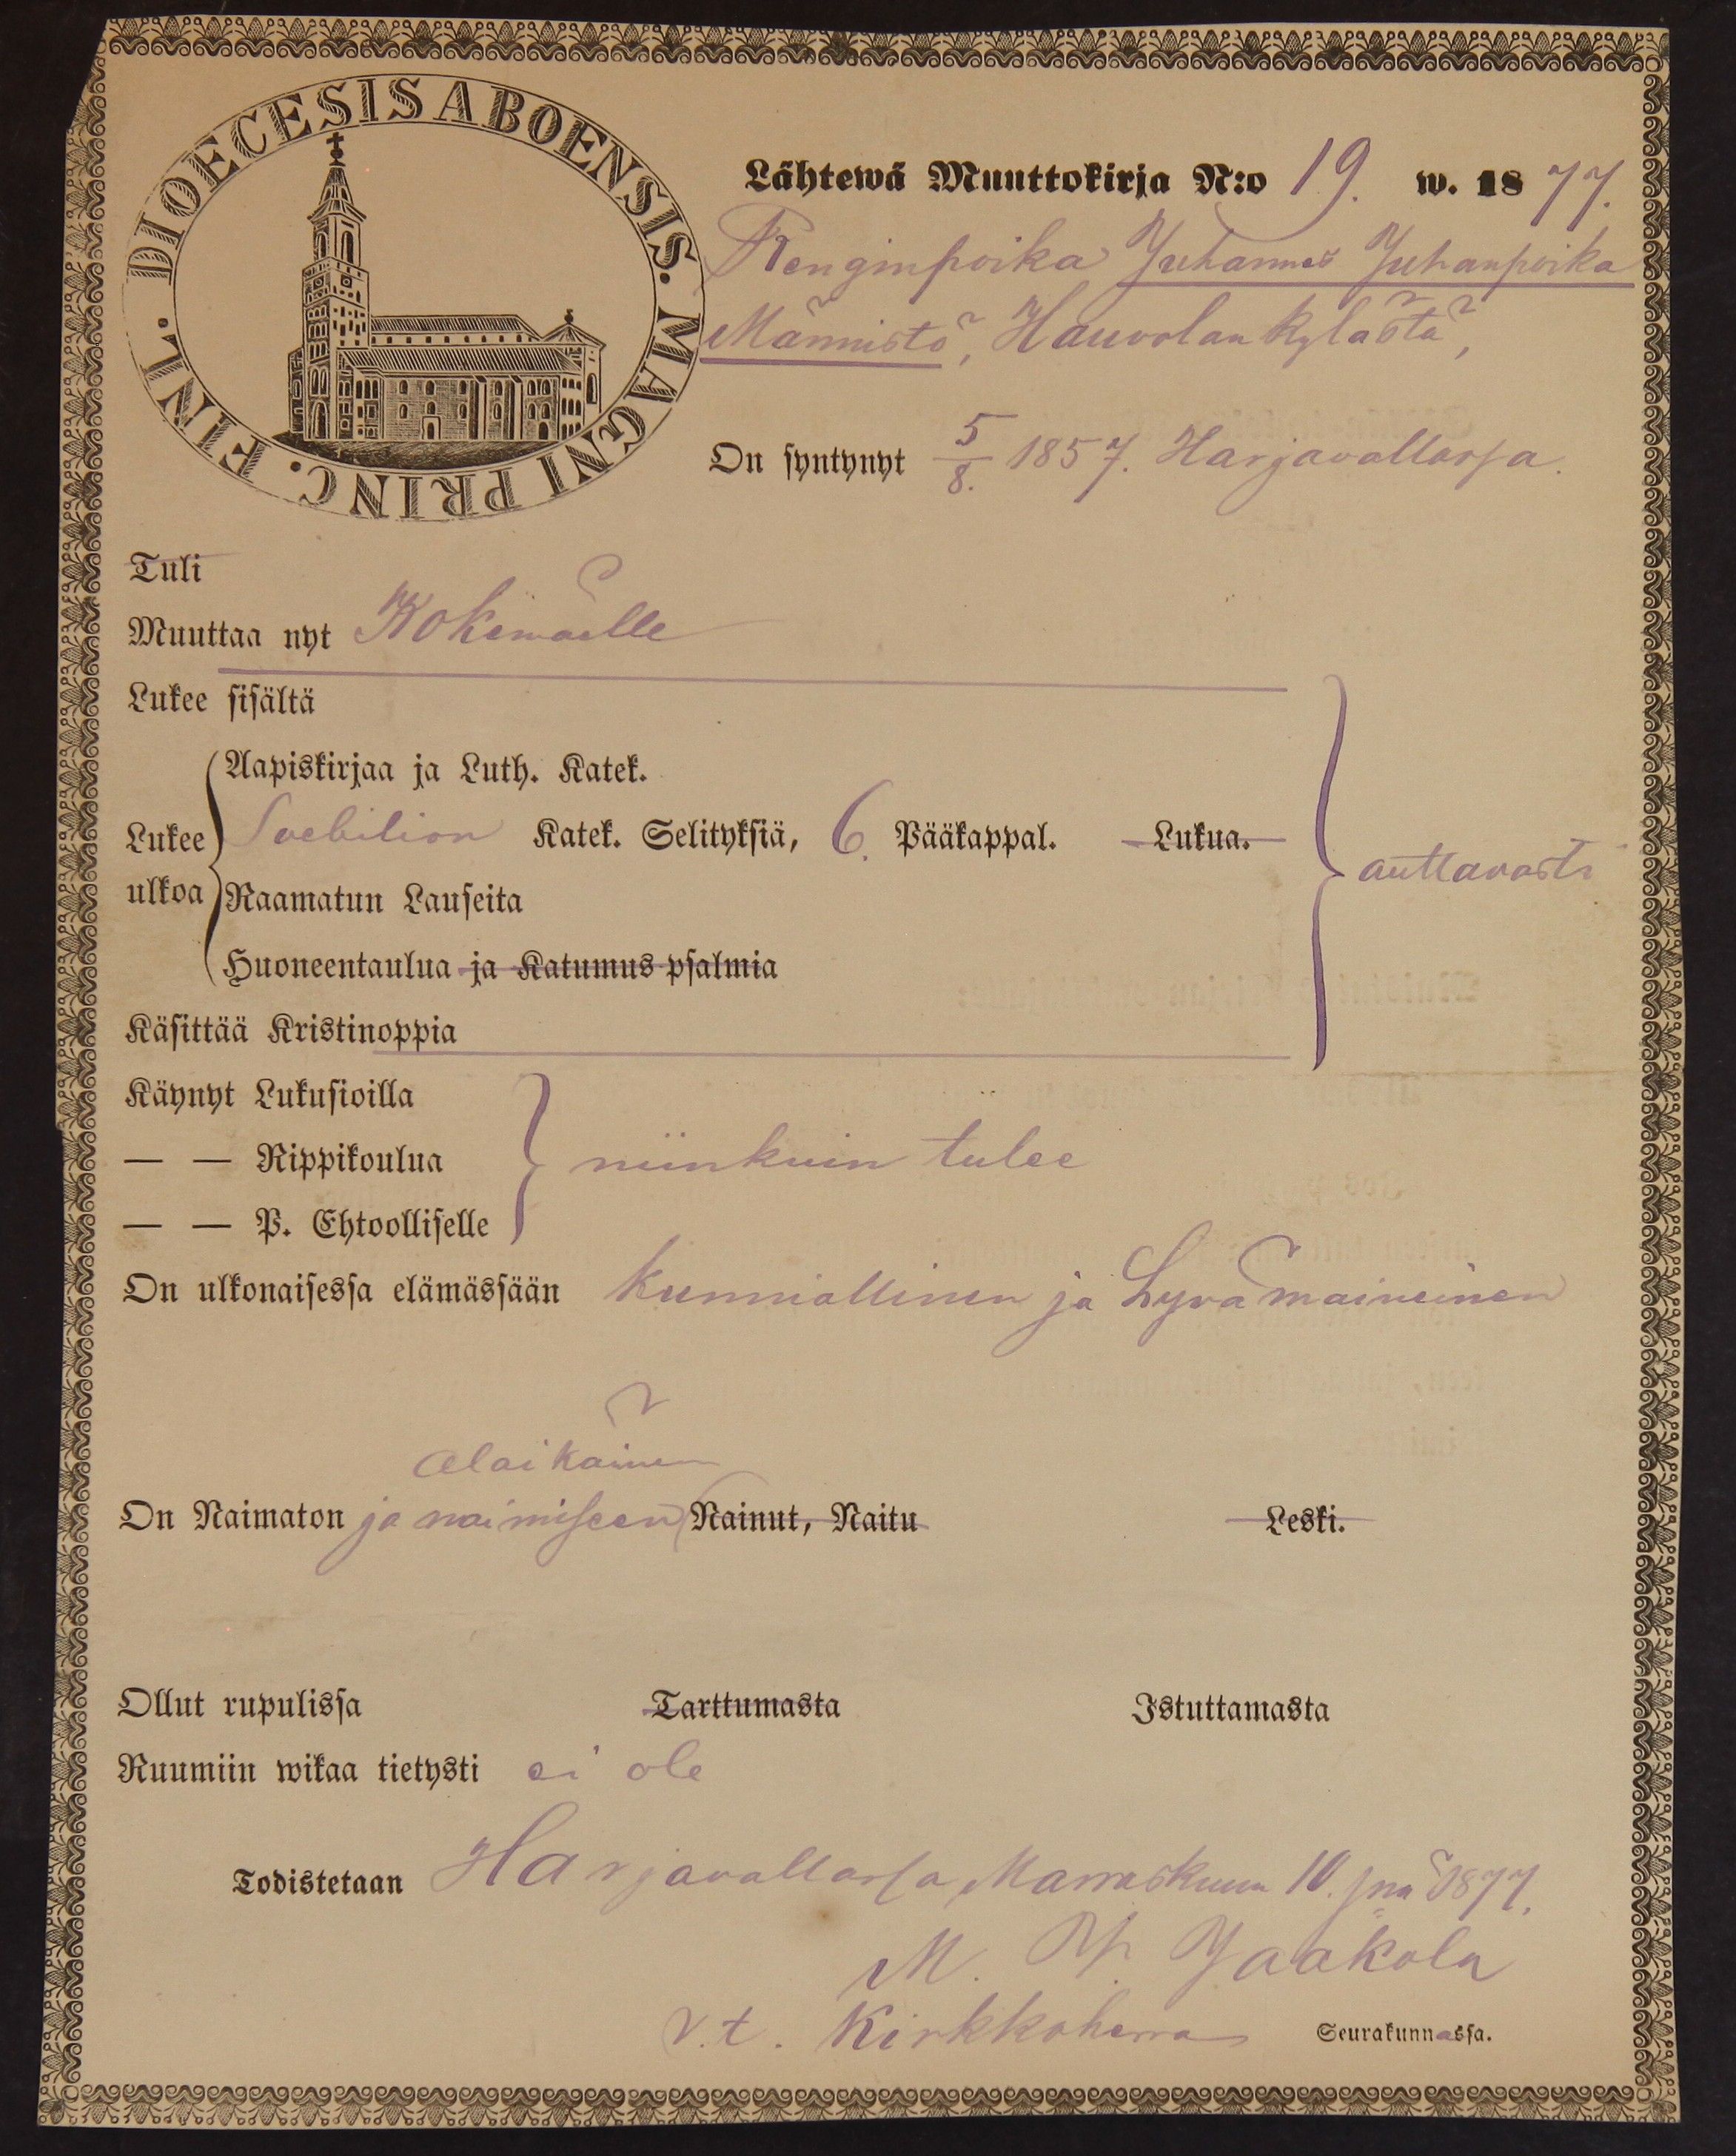 DIOECESIS ABOENSIS. MAGNI PRINC. FINL.
Lähtewä Muuttokirja N:o 19. w. 1877.
Renginpoika Juhannes Juhanpoika
Männistö, Hauvolan kylästä,
On syntynyt 5/8. 1857. Harjavallassa.
Tuli
Muuttaa nyt Kokemäelle
Lukee sisältä
Aapiskirjaa ja Luth. Katek.
Lukee ulkoa Svebilion Katek. Selityksiä, 6. Pääkappal. Lukua. auttavasti
Raamatun Lauseita
Huoneentaulua ja Katumus psalmia
Käsittää Kristinoppia
Käynyt Lukusioilla
— — Rippikoulua niinkuin tulee
— — P. Ehtoolliselle
On ulkonaisessa elämässään kunniallinen ja hyvämaineinen
alaikäinen
On Naimaton ja naimiseen Nainut, Naitu Leski.
Ollut rupulissa Tarttumasta Istuttamasta
Ruumiin wikaa tietysti ei ole
Todistetaan Harjavallassa, Marraskuun 10. pnä 1877.
M. Jaakola
v.t. Kirkkoherra Seurakunnassa.